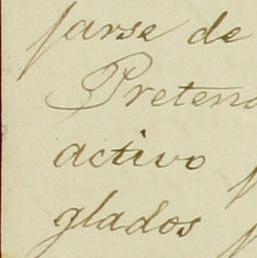 farse de
Preten
activo
glados